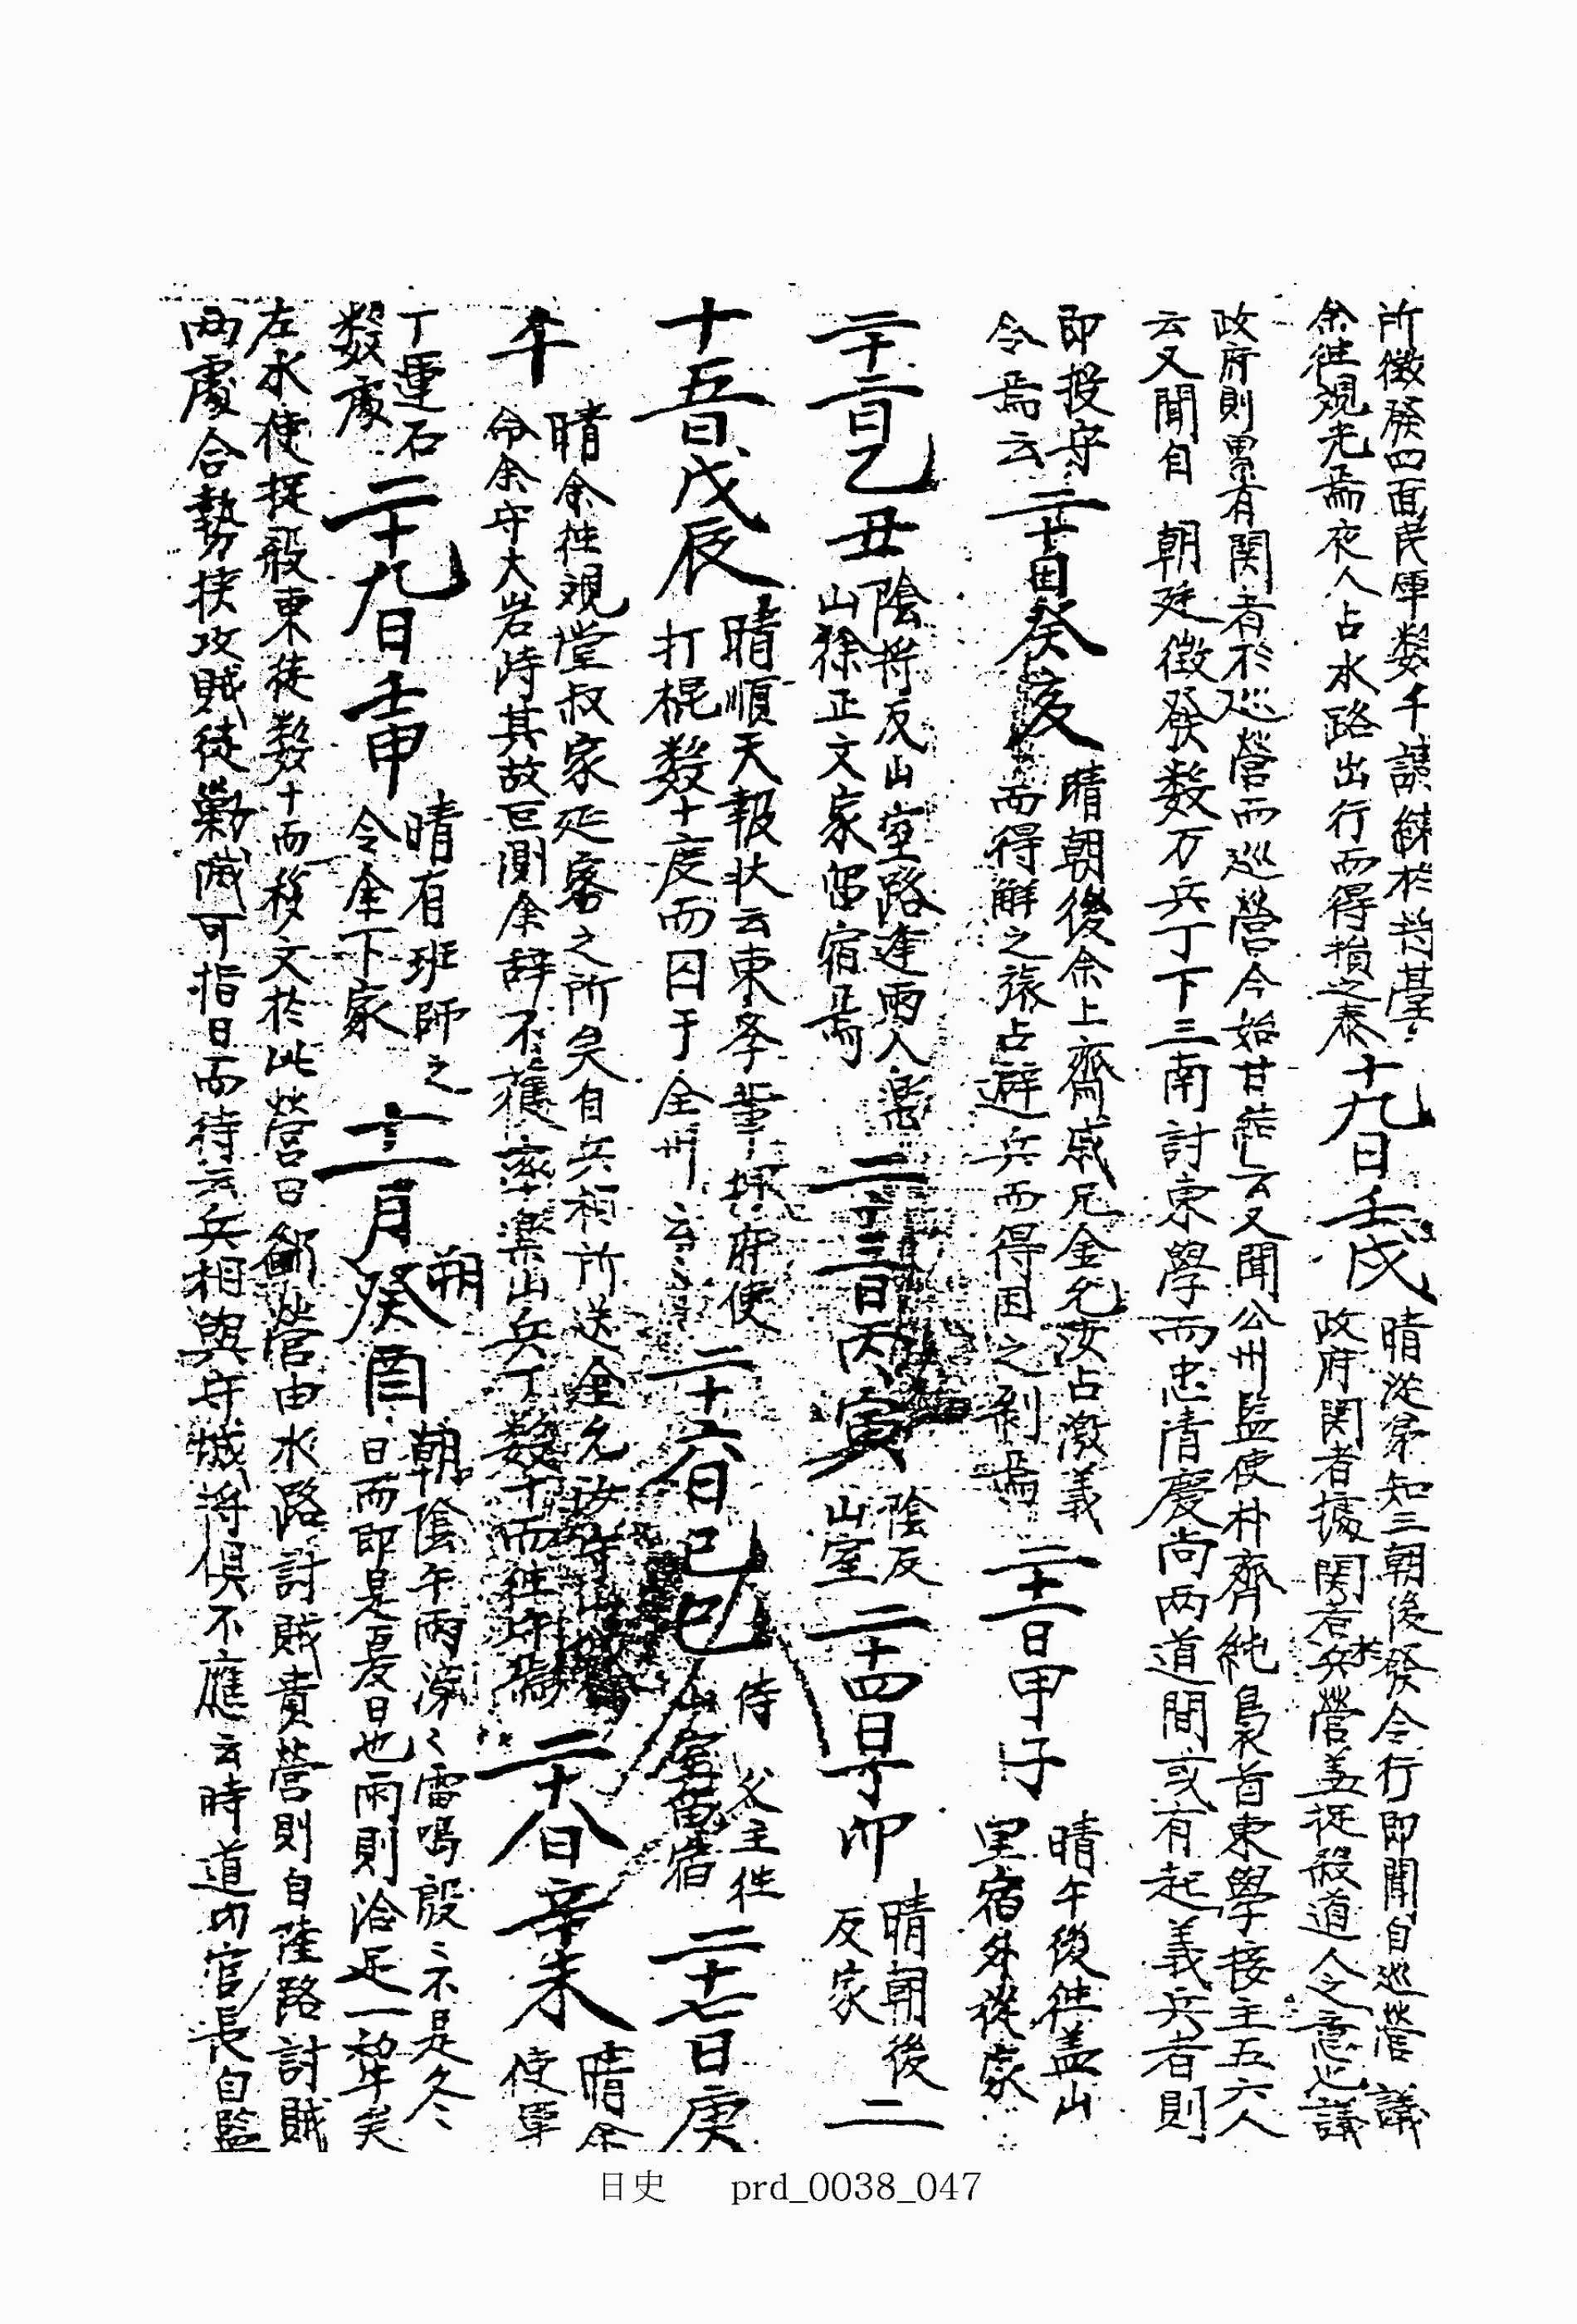 所徵發四面民軍數千調鍊於將臺
余徃觀光焉夜人占水路出行而得損之泰
十九日壬戌
晴從弟知三朝後發令行即聞自巡營 議
政府関者據関右兵營盖捉殺道人之意也議
政府則累有関者於巡營而巡營今始甘結云又聞公州監使朴齊純梟首東學接主五六人
云又聞自 朝廷徵發數万兵丁下三南討東學而忠淸慶尚兩道間或有起義兵者則
即投守
令焉云
二十日癸亥
晴朝後余上齋戚兄金允汝占激義
而得解之旅占避兵而得困之剝焉
二十一日甲子
晴午後徃盖山
里宿外從家
二十二日乙丑
陰將反山室路逢雨入
山徐正文家留宿焉
二十三日丙寅
陰反
山室
二十四日丁卯
晴朝後
反家
二
十五日戊辰
晴順天報状云東學輩捉府使
打棍數十度而囚于全州云
二十六日己巳
侍 父主徃
山室留宿
二十七日庚
午
晴余徃觀堂叔家延客之所矣自兵相所送金允汝
命余守大岩峙其故叵測余辞不獲率樂山兵丁數十而徃
二十八日辛未
晴余
使軍
丁運石
數處
二十九日壬申
晴有班師之
令余下家
十二月
朔
癸酉
朝陰午雨滂々雷鳴殷々不是冬
日而即是夏日也雨則洽足一犂矣
左水使捉殺東徒數十而移文於此營曰 營由水路討賊貴營則自陸路討賊
兩處合勢挾攻賊徒勦滅可指日而待云兵相與守城將俱不應云時道內官長自監
日史 prd_0038_047